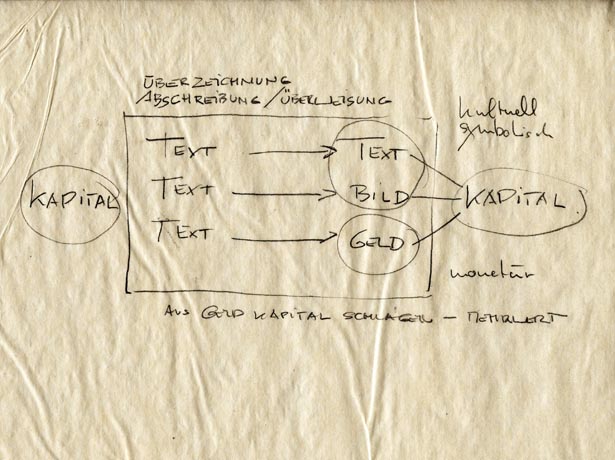 ÜBERZEICHNUNG
ABSCHREIBUNG/ÜBERWEISUNG
kulturell
symbolisch
TEXT → TEXT
KAPITAL TEXT → BILD KAPITAL
TEXT → GELD
monetär
AUS GELD KAPITAL SCHLAGEN – MEHRWERT